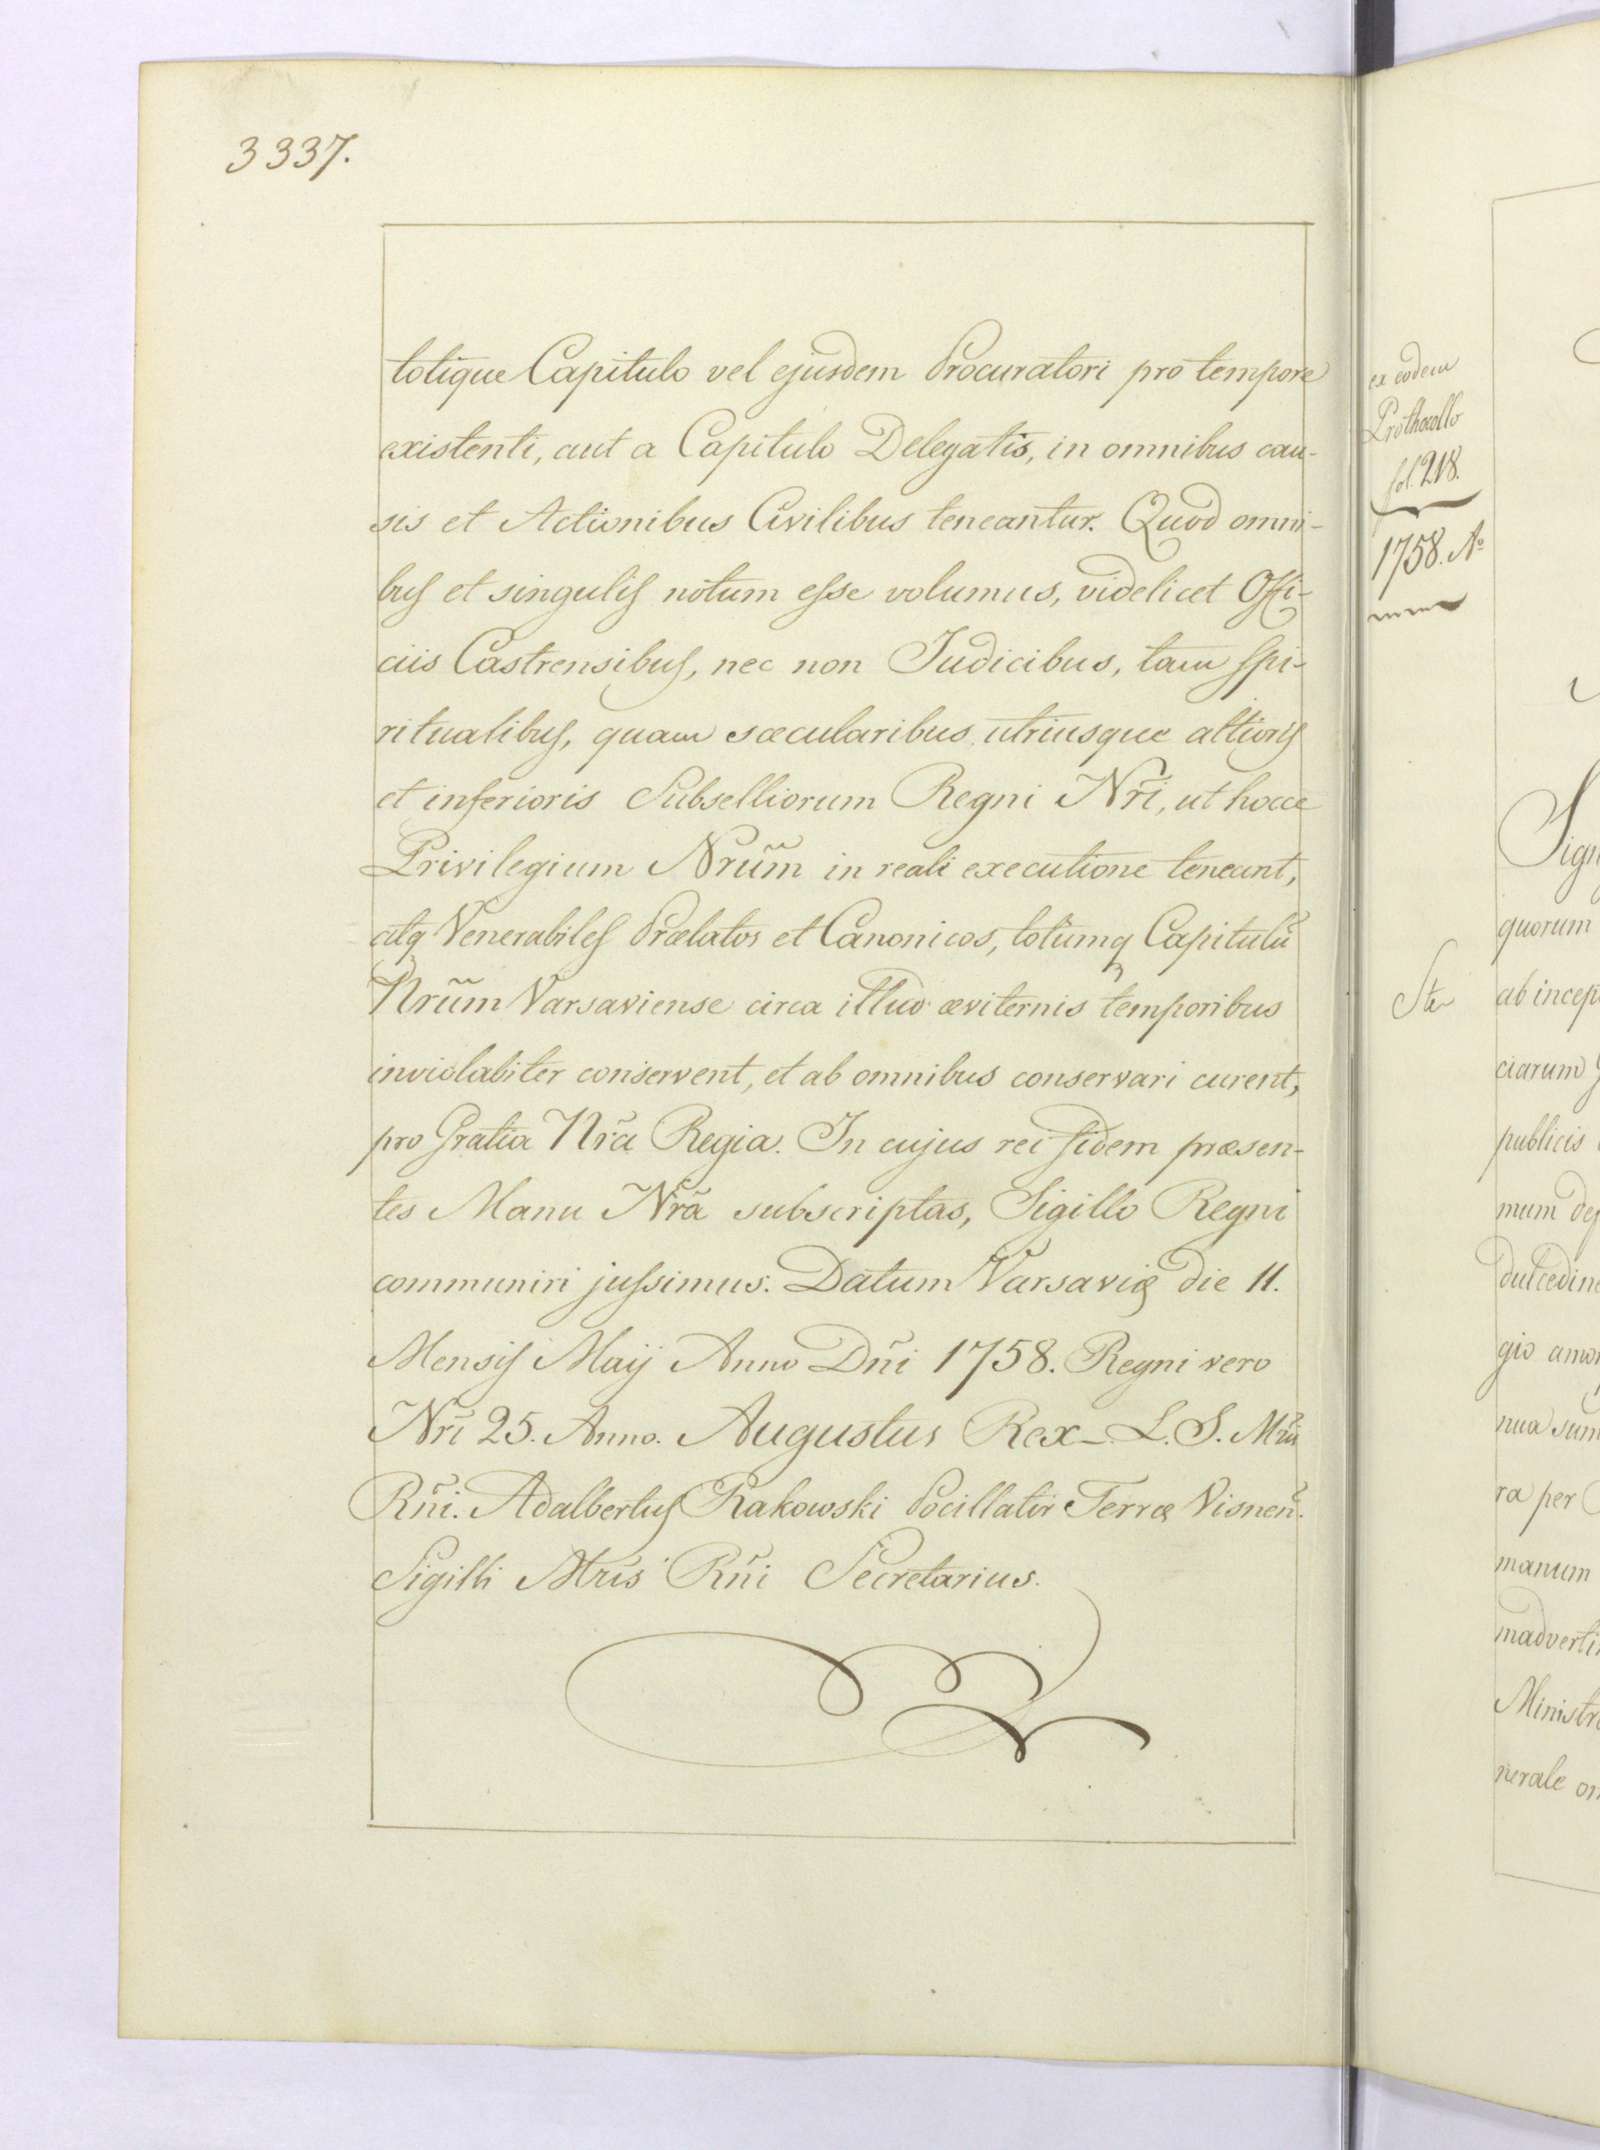 3337.
totique Capitulo vel ejusdem Procuratori pro tempore
existenti, aut a Capitulo Delegatis, in omnibus cau-
sis et Actionibus Civilibus teneantur. Quod omni-
bus et singulis notum esse volumus, videlicet Offi-
ciis Castrensibus, nec non Judicibus, tam spi-
ritualibus, quam sæcularibus utriusque altioris
et inferioris Subselliorum Regni Nr̃i, ut hocce
Privilegium Nrũm in reali executione teneant,
atq Venerabiles Prælatos et Canonicos, totumq Capitulũ
Nrũm Varsaviense circa illud æviternis temporibus
inviolabiter conservent, et ab omnibus conservari curent,
pro Gratia Nr̃a Regia. In cujus rei fidem præsen-
tes Manu Nr̃a subscriptas, Sigillo Regni
communiri jussimus. Datum Varsaviæ die 11.
Mensis Maij Anno Dñi 1758. Regni vero
Nr̃i 25. Anno. Augustus Rex. L. S. Mris
Rñi. Adalbertus Rakowski Pocillator Terræ Visneñ.
Sigilli Mris Rñi Secretarius.
ex eodem
Prothocollo
fol. 218.
1758. Aº
Sign
quorum
ab incep
ciarum
publicis
mum de
dulcedine
gio amo
nua sum
ra per
manum
madverti
Ministr
nerale om